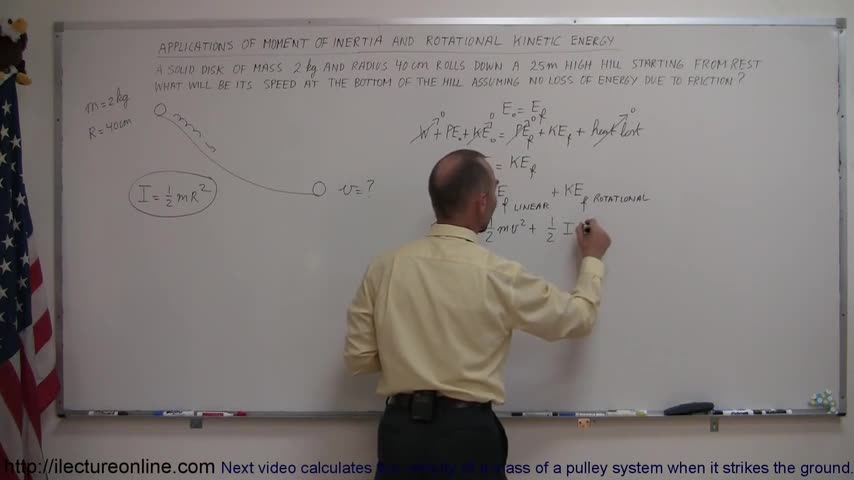 APPLICATIONS OF MOMENT OF INERTIA AND ROTATIONAL KINETIC ENERGY
A SOLID DISK OF MASS 2 kg AND RADIUS 40 cm ROLLS DOWN A 25m HIGH HILL STARTING FROM REST
WHAT WILL BE ITS SPEED AT THE BOTTOM OF THE HILL ASSUMING NO LOSS OF ENERGY DUE TO FRICTION?
m = 2 kg
R = 40 cm
I = ½ mR²
v = ?
E₀ = E_f
W⁰ + PE₀ + KE₀⁰ = PE_f⁰ + KE_f + heat lost⁰
= KE_f
E_f LINEAR + KE_f ROTATIONAL
½ mv² + ½ I
http://ilectureonline.com Next video calculates the velocity of a mass of a pulley system when it strikes the ground.